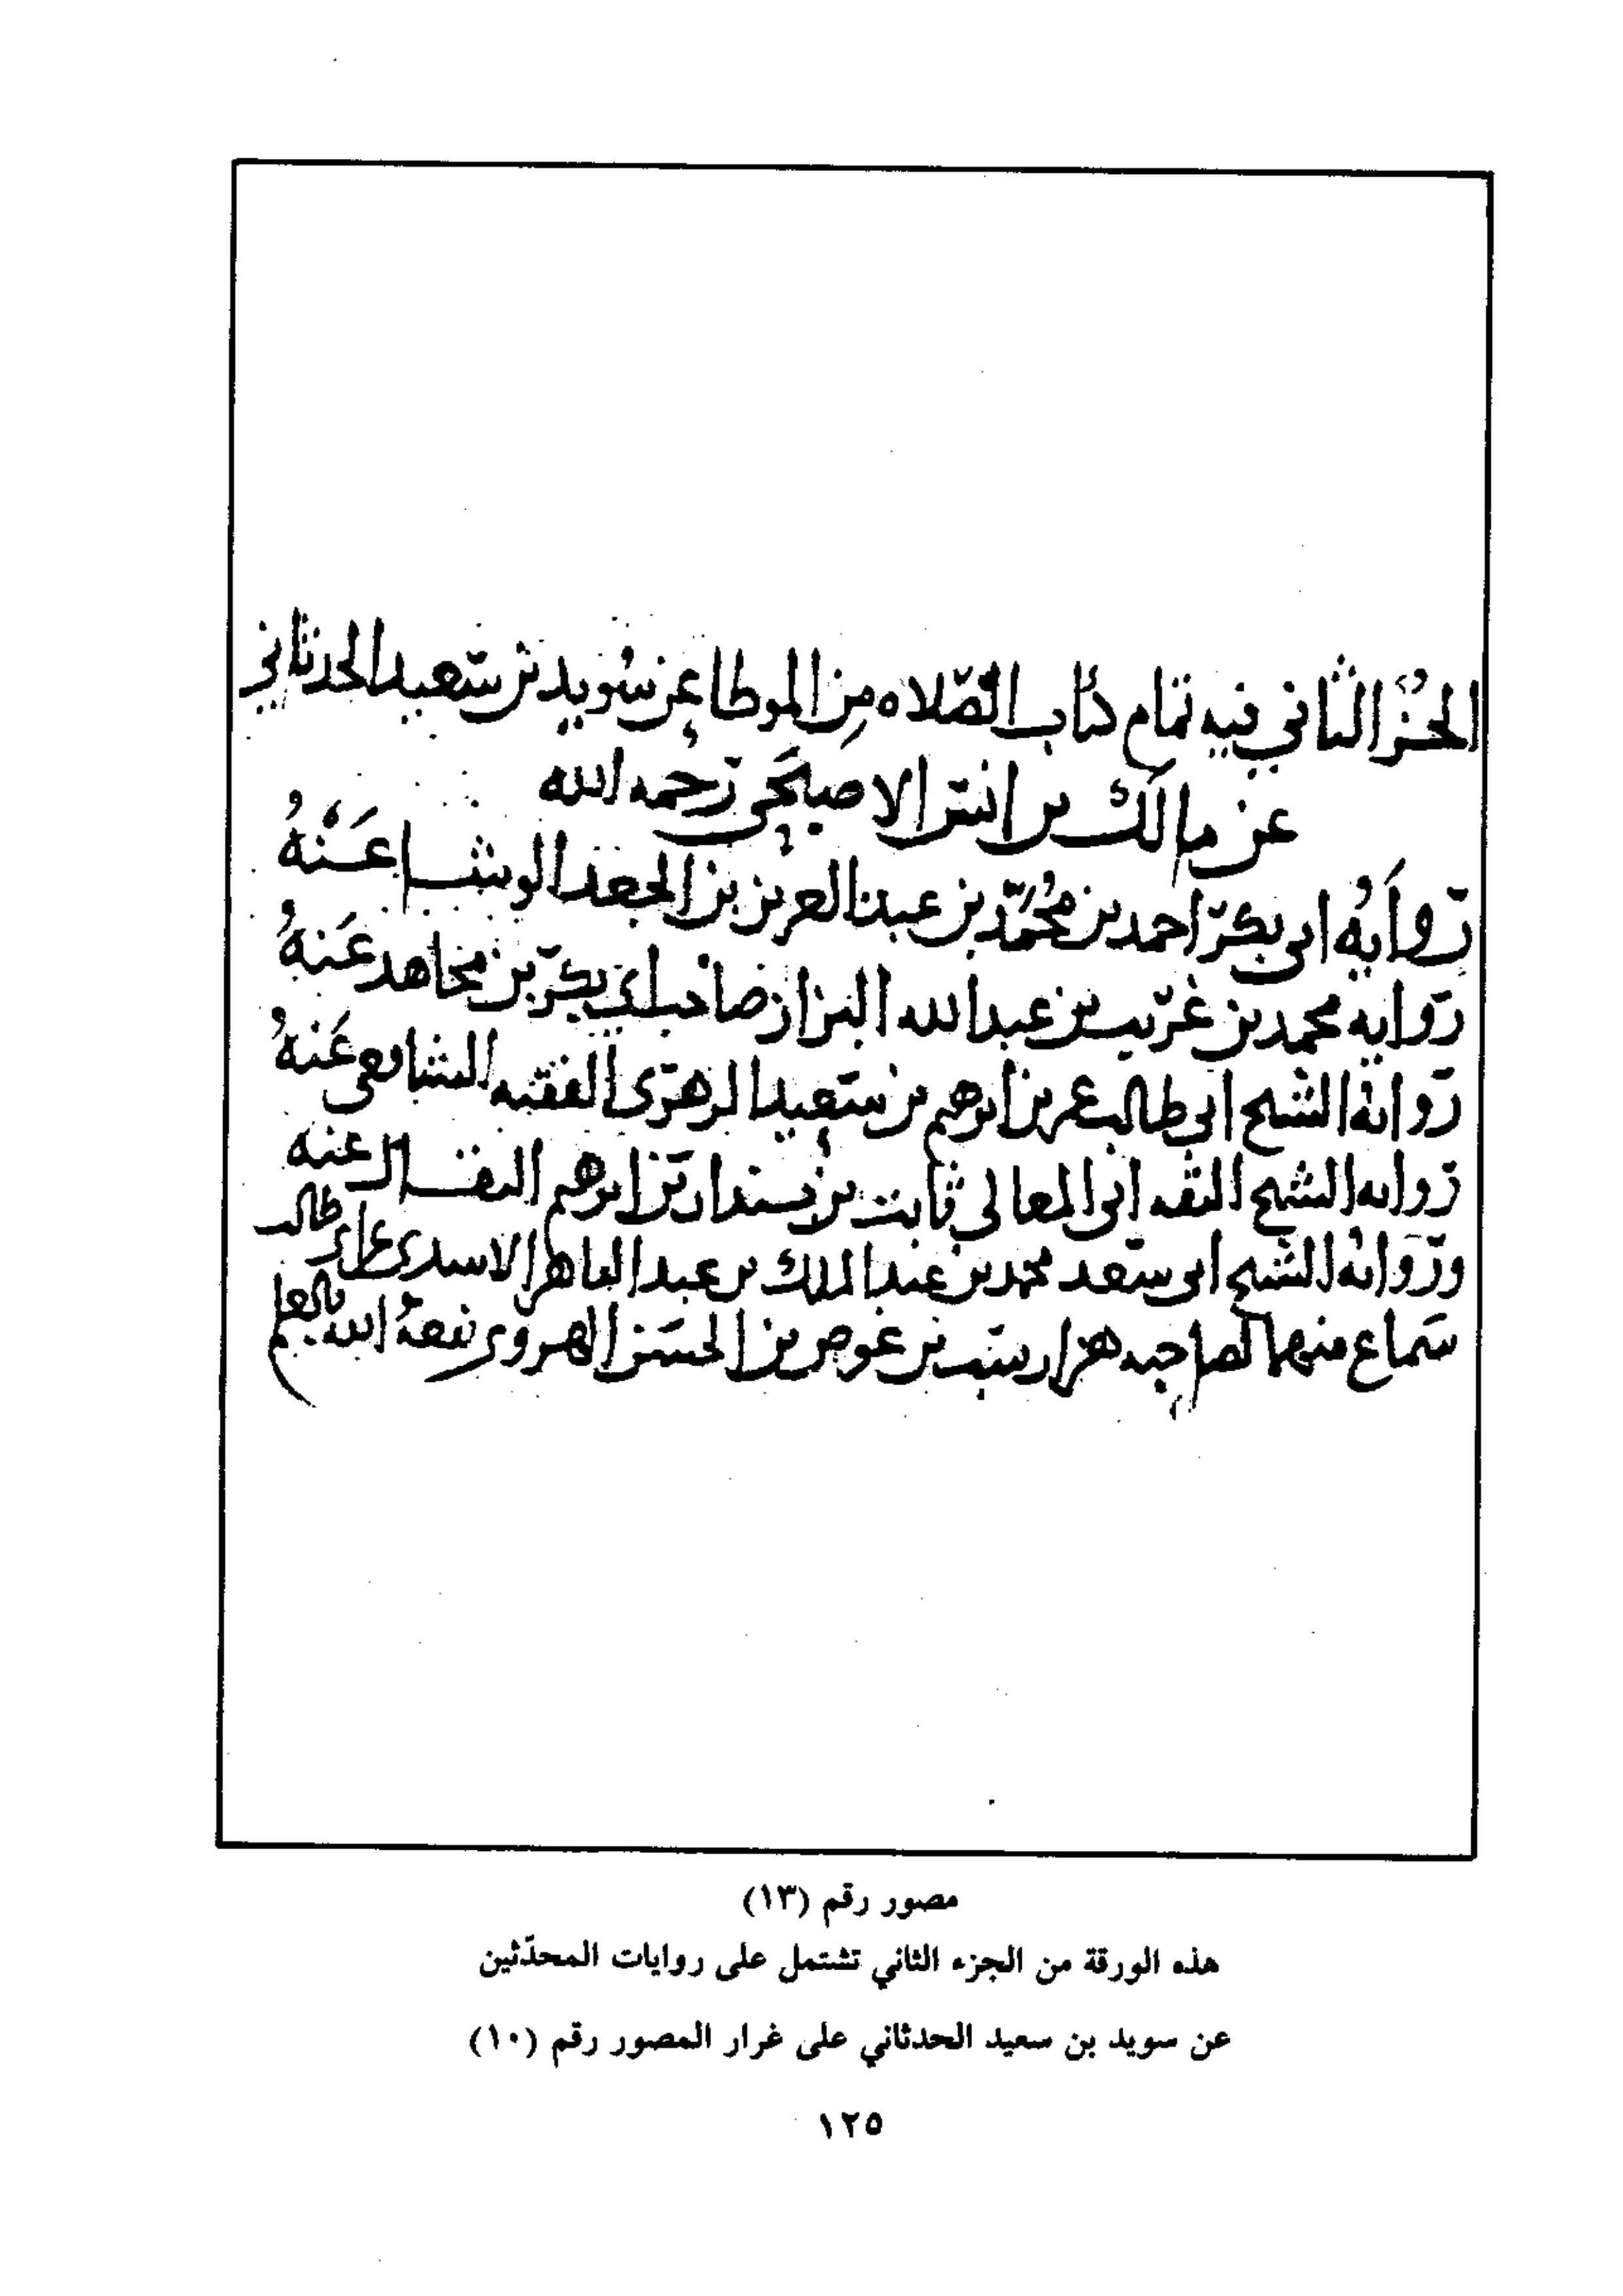 الجزُ الثاني فيه تمام كتاب الصّلاه مِن الموطا عن سُويد بن سَعيد الحدثاني
عن مالك بن انس الاصبَحي رَحمه الله
رَوايهُ ابي بكر احمد بن مُحمَّد بن عبد العزيز بن الجعد الوشا عَنْهُ
روايه محمد بن غريب بن عبد الله البزاز صاحب ابي بكر بن مجاهد عَنهُ
روايهُ الشيخ ابي طالب عمر بن ابرهيم بن سَعيد الزهري الفقيه الشافعي عَنهُ
روايه الشيخ الثقه ابي المعالي ثابت بن بندار بن ابرهيم البقال عنه
وروايهُ الشيخ ابي سَعد محمد بن عبد الملك بن عبد القاهر الاسدي عن ابي طالب
سَماع منهما لصاحبه هزارسب بن عوض بن الحسَن الهروي نفعهُ الله بالعلم
مصور رقم (١٣)
هذه الورقة من الجزء الثاني تشتمل على روايات المحدّثين
عن سويد بن سعيد الحدثاني على غرار المصور رقم (١٠)
١٢٥